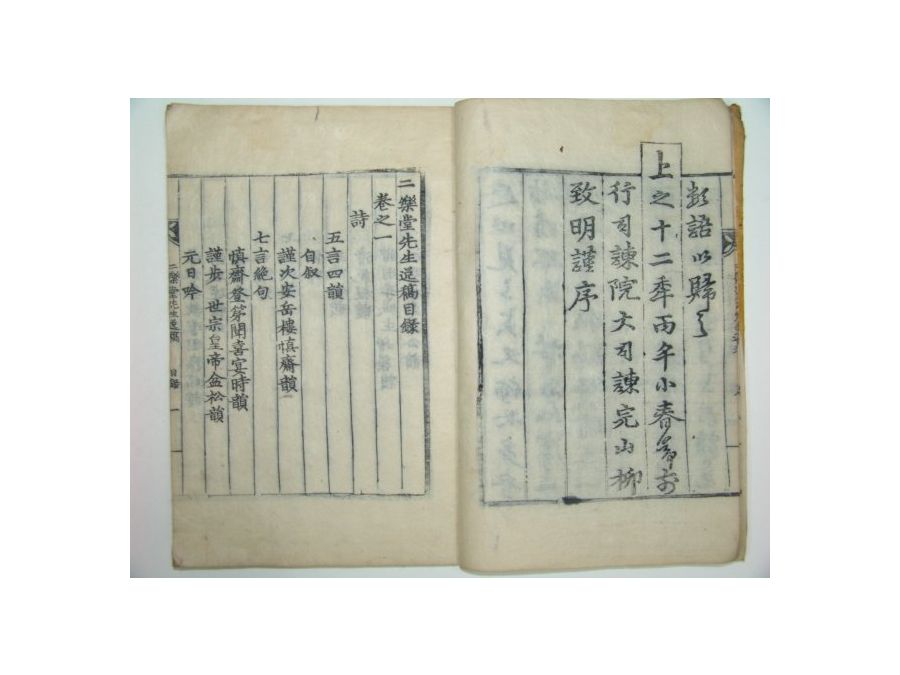 數語以歸之
上之十二年丙午小春節前
行司諫院大司諫完山柳
致明謹序
二樂堂先生逸稿目錄
卷之一
詩
五言四韻
自叙
謹次安岳樓愼齋韻
七言絶句
愼齋登第聞喜宴時韻
謹步 世宗皇帝金松韻
元日吟
二樂堂先生逸稿 目錄 一